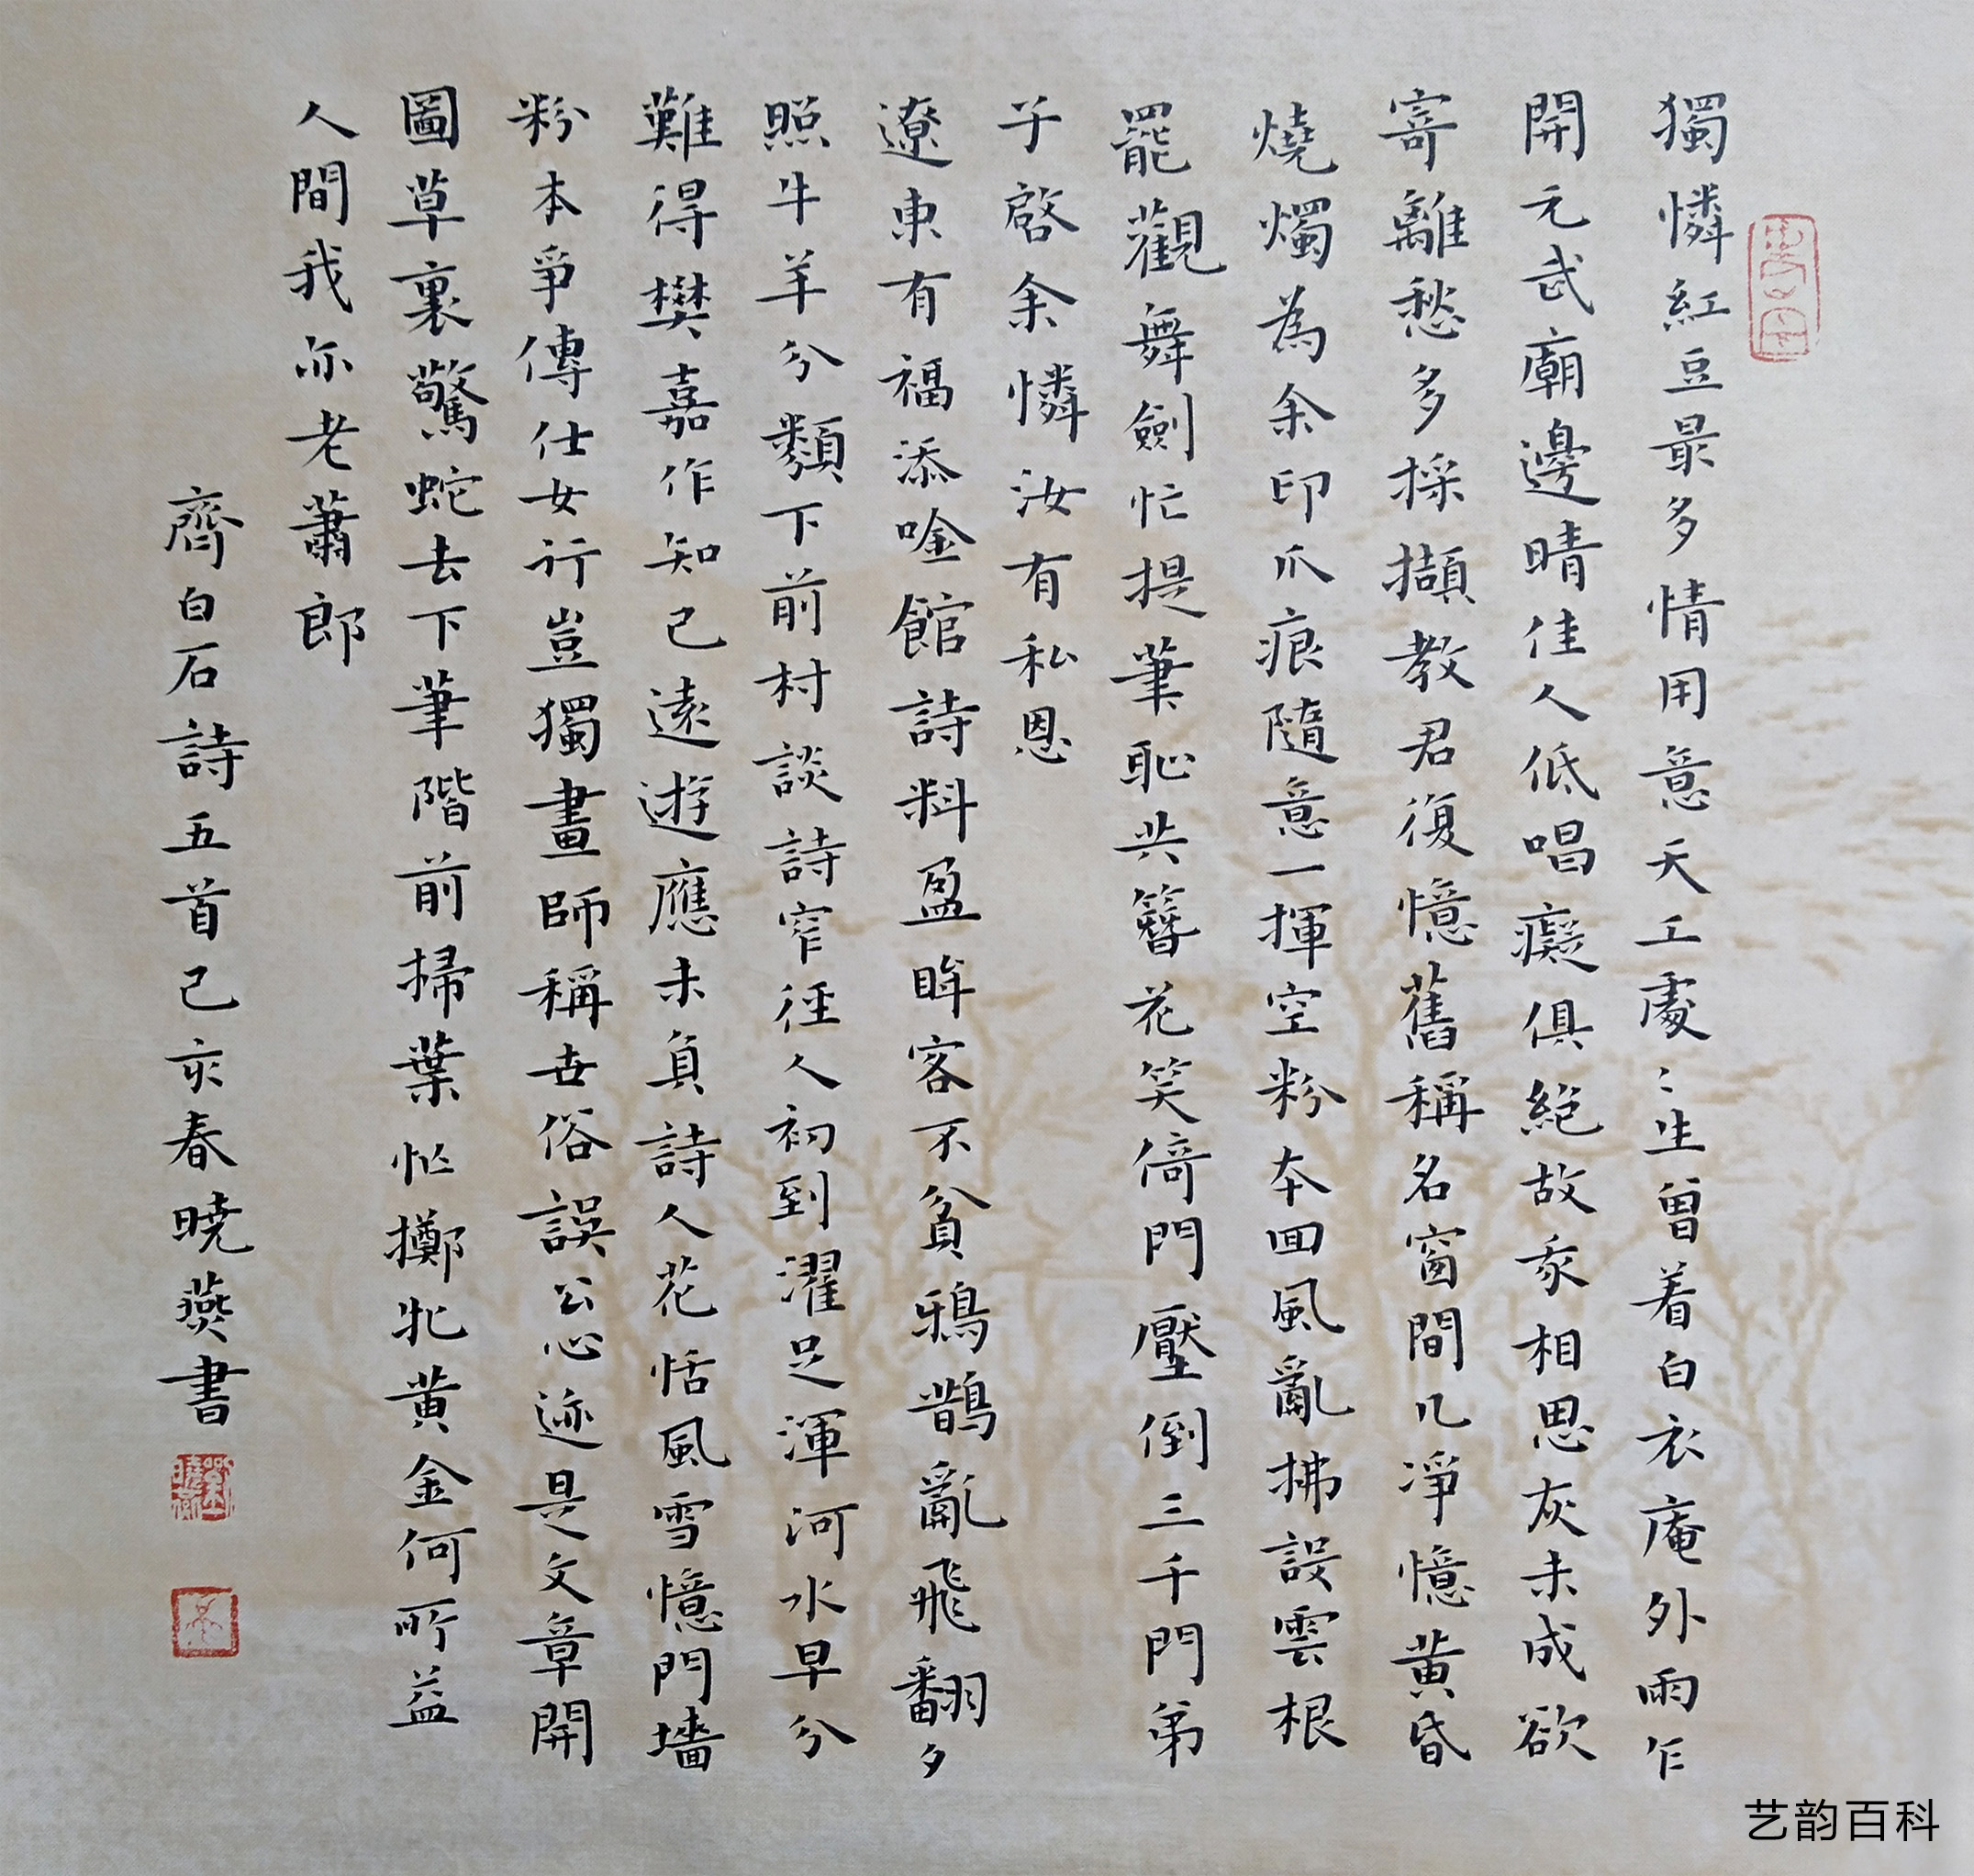 獨憐紅豆最多情用意天工處〻生曾着白衣庵外雨乍
開元武廟邊晴佳人低唱癡俱絕故家相思灰未成欲
寄離愁多採擷教君復憶舊稱名窗間几凈憶黄昏
燒燭為余印爪痕隨意一揮空粉本回風亂拂誤雲根
罷觀舞劍忙提筆恥共簪花笑倚門壓倒三千門弟
子啓余憐汝有私恩
遼東有福添唫館詩料盈眸客不貧鴉鵲亂飛翻夕
照牛羊分類下前村談詩窄徑人初到濯足渾河水早分
難得樊嘉作知己遠遊應未負詩人花恬風雪憶門墻
粉本爭傳仕女行豈獨畫師稱世俗誤公心迹是文章開
圖草裏驚蛇去下筆階前掃葉忙擲牝黄金何所益
人間我亦老蕭郎
齊白石詩五首己亥春曉燕書
艺韵百科